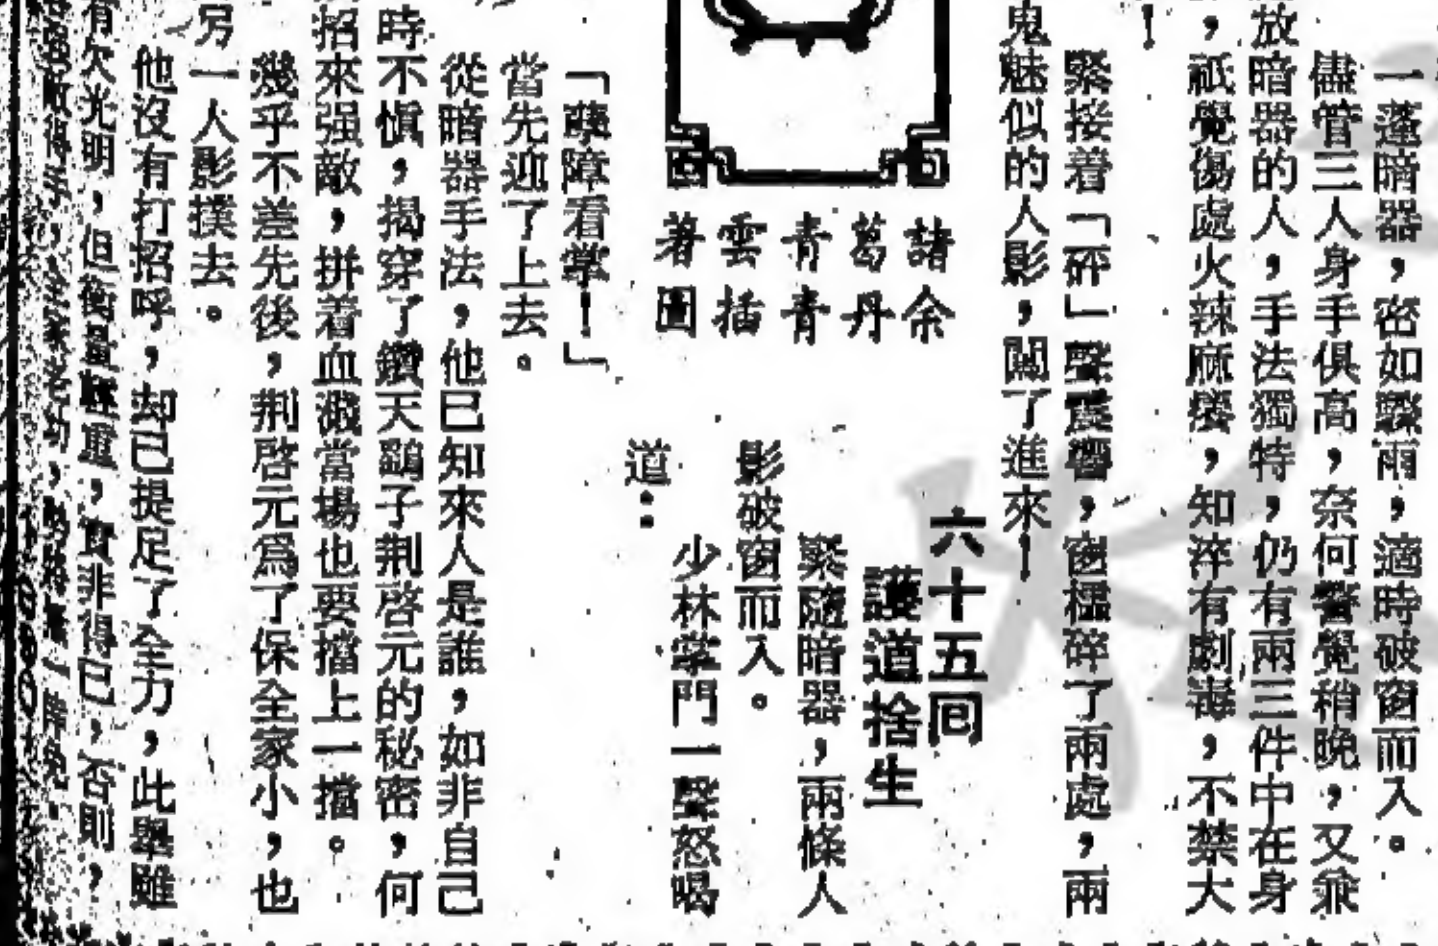 一蓬暗器，密如驟雨，適時破窗而入。
儘管三人身手俱高，奈何警覺稍晚，又兼
放暗器的人，手法獨特，仍有兩三件中在身
，祇覺傷處火辣麻癢，知淬有劇毒，不禁大
！
緊接着「砰」聲震響，窗櫺碎了兩處，兩
鬼魅似的人影，闖了進來！
六十五回
護道捨生
諸葛青雲著
余丹青插圖
緊隨暗器，兩條人
影破窗而入。
少林掌門一聲怒喝
道：
「孽障看掌！」
當先迎了上去。
從暗器手法，他已知來人是誰，如非自己
時不慎，揭穿了鑽天鷂子荆啓元的秘密，何
招來强敵，拼着血濺當場也要擋上一擋。
幾乎不差先後，荆啓元爲了保全家小，也
另一人影撲去。
他沒有打招呼，却已提足了全力，此舉雖
有欠光明，但衡量輕重，實非得已，否則，